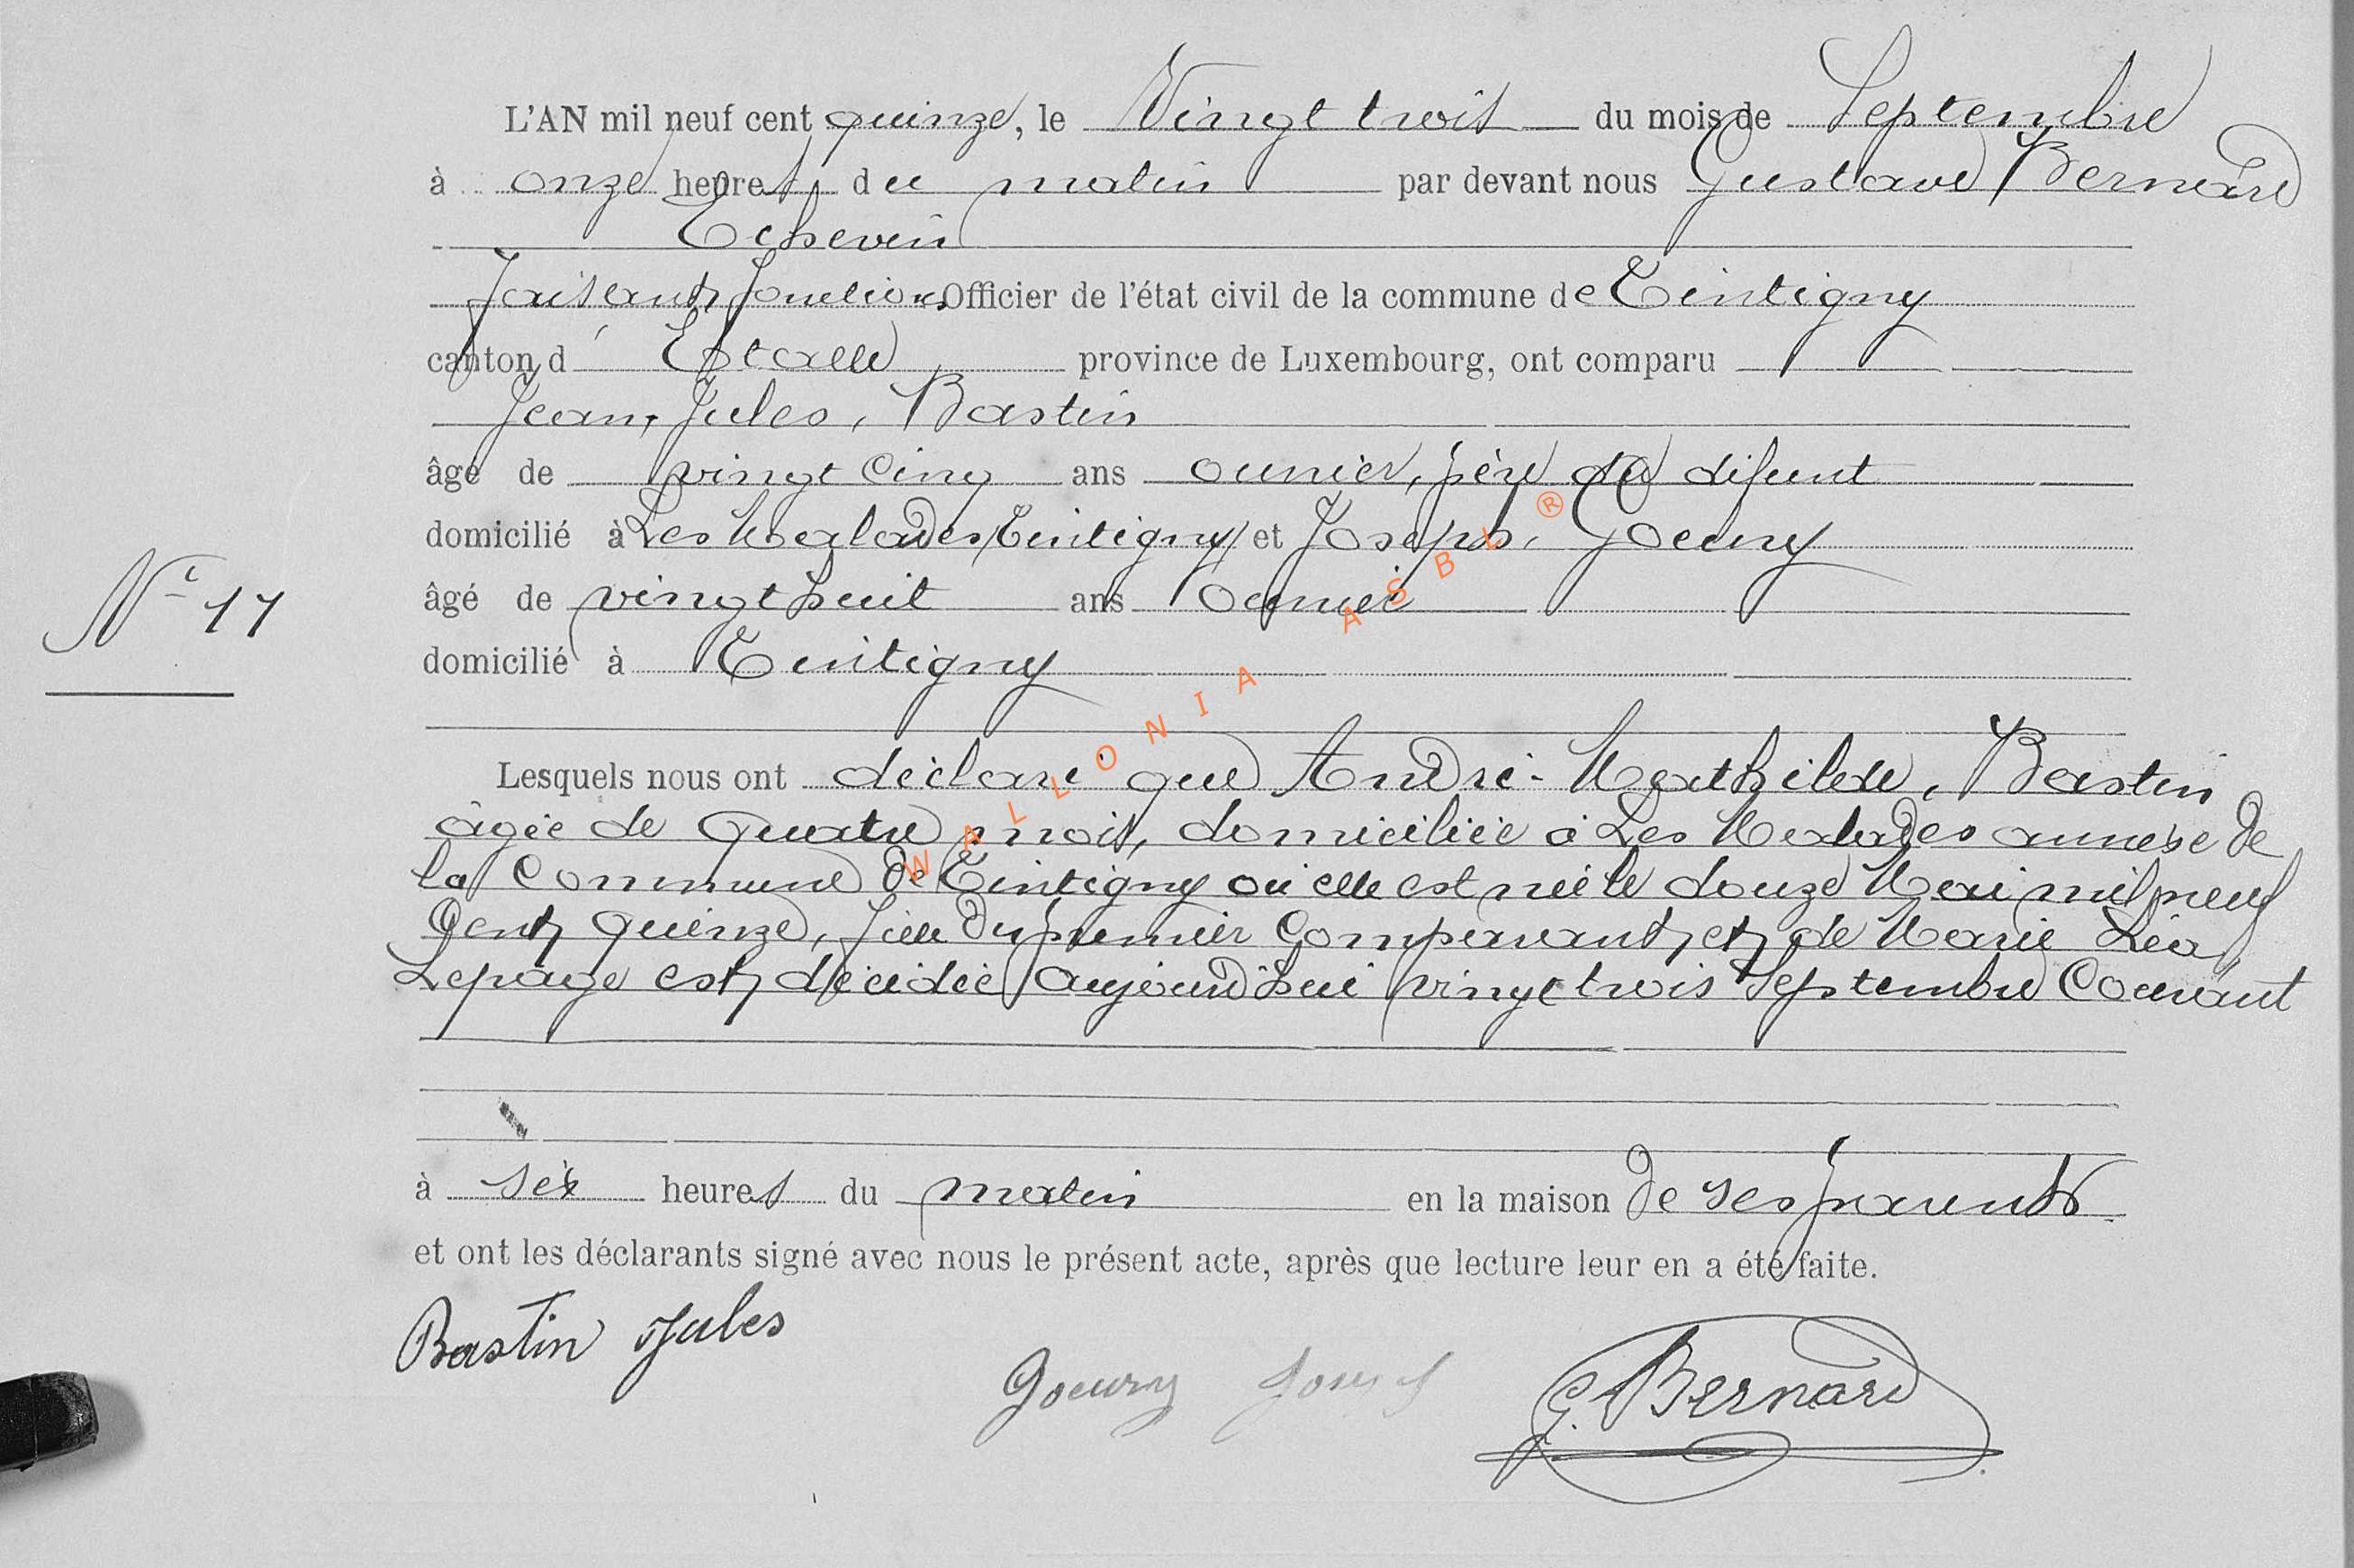 L'AN mil neuf cent quinze, le Vingt trois du mois de Septembre
à onze heures du matin par devant nous Gustave Bernard
Echevin
faisant fonctions Officier de l'état civil de la commune de Tintigny
canton d'Etalle province de Luxembourg, ont comparu
Jean, Jules, Bastin
âgé de vingt cinq ans ouvrier, père du défunt
domicilié à Les Malades Tintigny et Joseph, Goeury
âgé de vingt huit ans Ouvrier
N° 17
domicilié à Tintigny
Lesquels nous ont déclaré que André-Mathilde, Bastin
âgée de quatre mois, domiciliée à Les Malades annexe de
la Commune de Tintigny où elle est née le douze Mai mil neuf
Cent quinze, fille du premier Comparant et de Marie Léa
Lepage est décédée aujourd'hui vingt trois Septembre Courant
à six heures du matin en la maison de ses parents
et ont les déclarants signé avec nous le présent acte, après que lecture leur en a été faite.
Bastin Jules
Goeury Josef
G. Bernard
WALLONIA ASBL ®